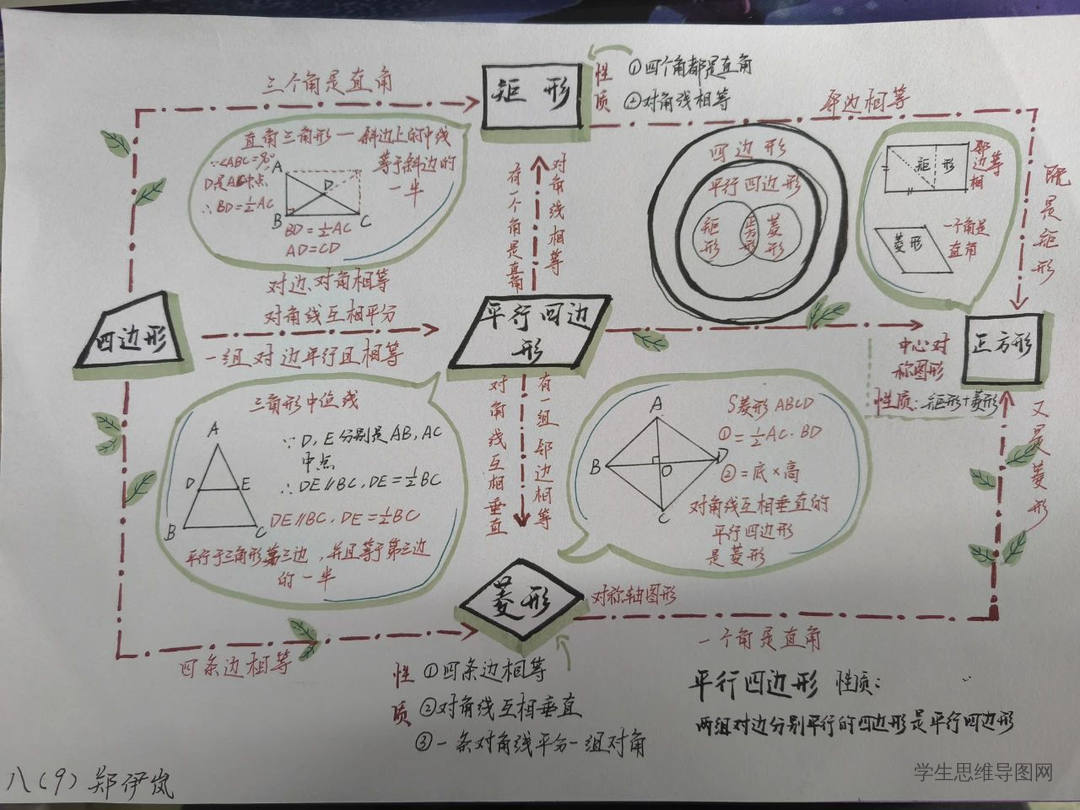 三个角是直角
矩形
性质
①四个角都是直角
②对角线相等
邻边相等
直角三角形一 斜边上的中线
等于斜边的
一半
∵∠ABC=90°
D是AC中点
∴BD=½AC
A
D
B
C
BD=½AC
AD=CD
有一个角是直角
对角线相等
四边形
平行四边形
矩形
正方形
菱形
矩形
邻边相等
菱形
一个角是
直角
既是矩形
对边、对角相等
对角线互相平分
一组对边平行且相等
四边形
平行四边
形
中心对
称图形
性质:矩形+菱形
正方形
又是菱形
三角形中位线
A
D
E
B
C
∵D,E分别是AB,AC
中点
∴DE∥BC,DE=½BC
DE∥BC,DE=½BC
平行于三角形第三边,并且等于第三边
的一半
对角线互相垂直
有一组邻边相等
A
B
O
D
C
S菱形ABCD
①=½AC·BD
②=底×高
对角线互相垂直的
平行四边形
是菱形
菱形
对称轴图形
四条边相等
一个角是直角
性质
①四条边相等
②对角线互相垂直
③一条对角线平分一组对角
平行四边形 性质:
两组对边分别平行的四边形是平行四边形
八(9)郑伊岚
学生思维导图网